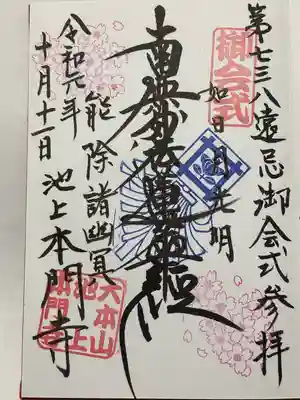 第七三八遠忌御会式参拝
御会式
如日月光明
南無妙法蓮華経
能除諸幽冥
令和元年
十月十一日 池上本門寺
大本山
池上
本門寺